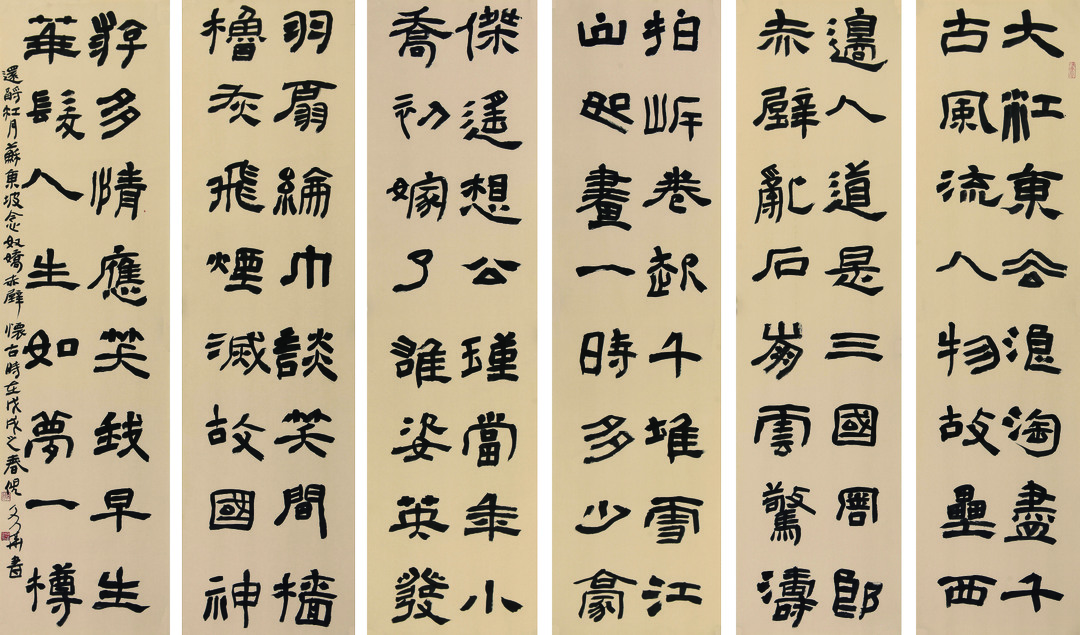 大江東去浪淘盡千
古風流人物故壘西
邊人道是三國周郎
赤壁亂石崩雲驚濤
拍岸卷起千堆雪江
山如畫一時多少豪
傑遙想公瑾當年小
喬初嫁了誰姿英發
羽扇綸巾談笑間檣
櫓灰飛煙滅故國神
游多情應笑我早生
華髮人生如夢一樽
還酹江月蘇東坡念奴嬌赤壁懷古時在戊戌之春倪文華書